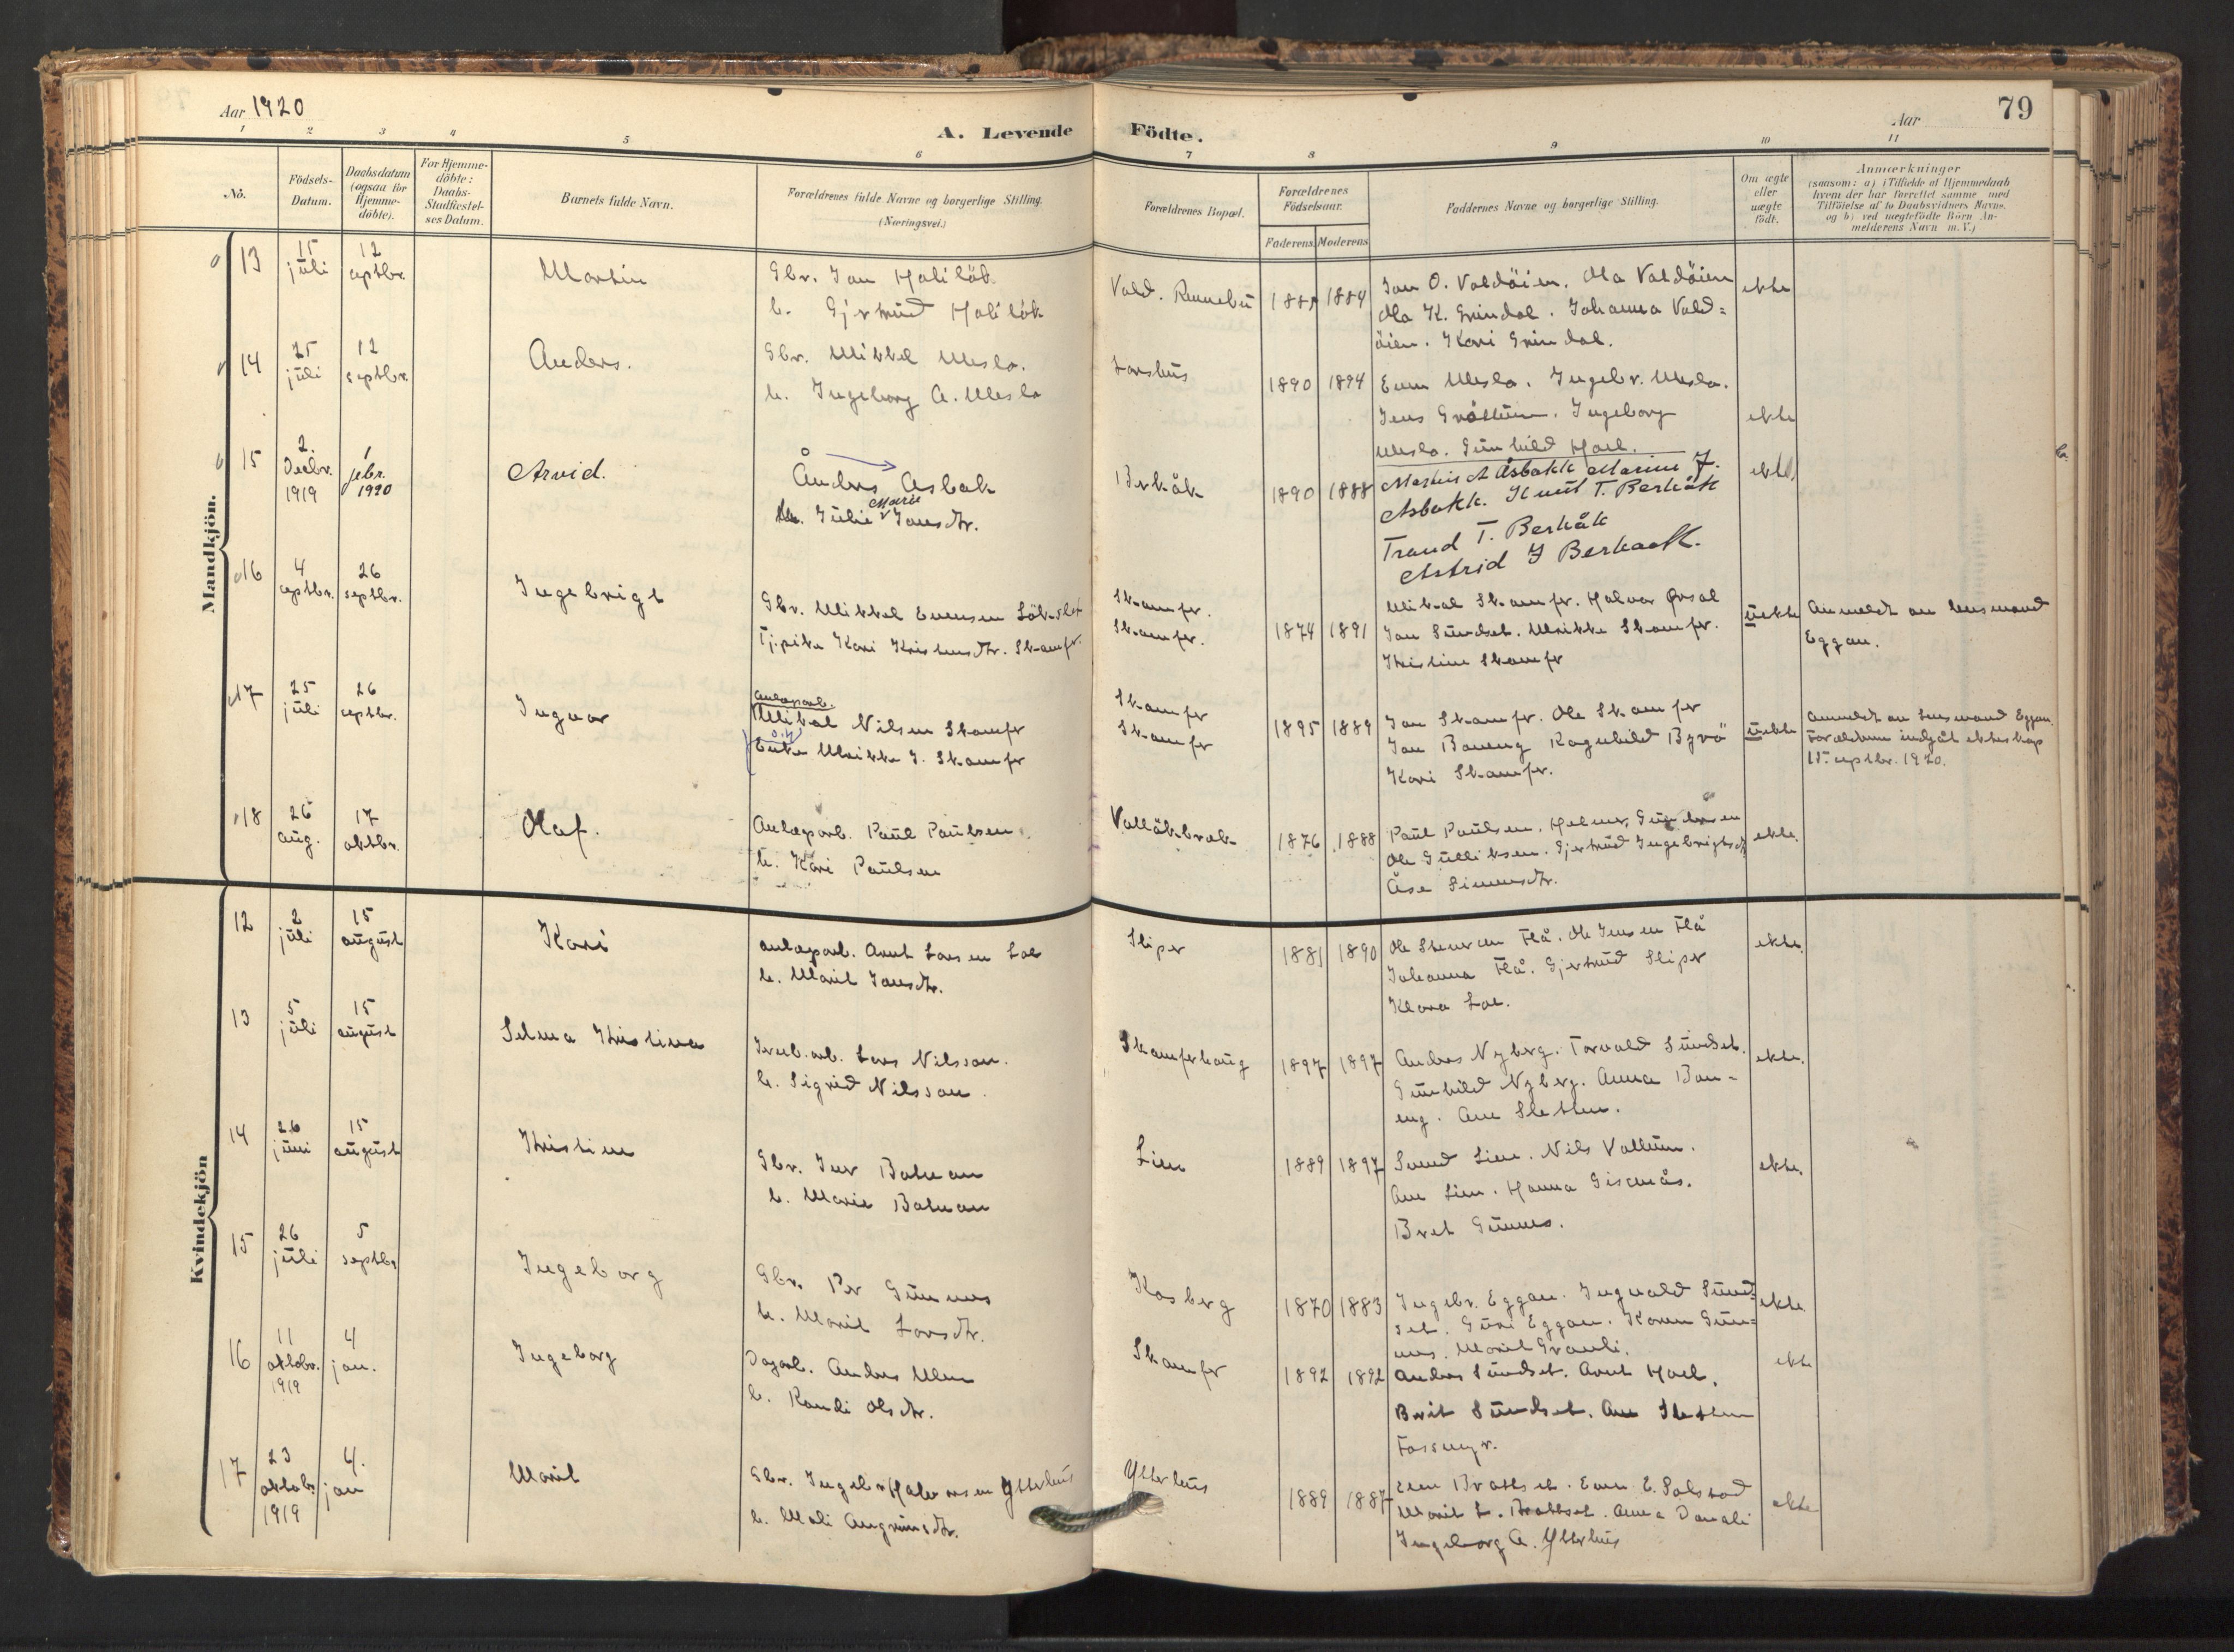 79
Aar 1920
A. Levende Födte.
Aar
1 2 3 4 5 6 7 8 9 10 11
No.
Födsels-
Datum.
Daabsdatum
(ogsaa for
Hjemme-
döbte).
For Hjemme-
döbte:
Daabs-
Stadfæstel-
ses Datum.
Barnets fulde Navn.
Forældrenes fulde Navne og borgerlige Stilling.
(Næringsvei.)
Forældrenes Bopæl.
Forældrenes
Födselsaar.
Faderens. Moderens
Faddernes Navne og borgerlige Stilling.
Om ægte
eller
uægte
födt.
Anmærkninger
(saasom: a) i Tilfælde af Hjemmedaab
hvem der har forrettet samme med
Tilföielse af to Daabsvidners Navne,
og b) ved uægtefödte Börn An-
melderens Navn m. V.)
Mandkjön.
13
15
juli
12
septbr.
Martin
Gbr. Jon
h. Gjertrud
Vold. Rennebu
1884
Jon O. Voldöien. Ola Voldöien
Ola K. Grindal. Johanna Vold=
öien. Kari Grindal.
ekte
14
25
juli
12
septbr.
Anders.
Gbr. Mikkel Uleslo.
h. Ingeborg A. Uleslo
Larshus
1890 1894
Even Uleslo. Ingebr. Uleslo.
Jens Gröttum. Ingeborg
Uleslo. Gunhild Hoel.
ekte
15
2.
Decbr.
1919
1
febr.
1920
Arvid.
Anders Åsbak
h. Julie Marie Jonsdtr.
Berkåk
1890 1888
Martin A Åsbakk Marine J.
Asbakk. Knut T. Berkåk
Trond T. Berkåk
Astrid J Berkaak.
ekte
16
4
septbr.
26
septbr.
Ingebrigt
Gbr. Mikkel Evensen
Tj.pike Kari Kristensdtr. Skamfr.
Skamfr.
Skamfr.
1874 1891
Mikal Skamfr. Halvor
Jon Sundset. Marikke Skamfr.
Kristine Skamfr
uekte
Anmeldt av lensmand
Eggan.
17
25
juli
26
septbr.
Ingvar
Anlægsarb.
Mikal Nilsen Skamfr
Enke Marikke J. Skamfr
Skamfr
Skamfr
1895 1889
Jon Skamfr. Ole Skamfr
Jon Baneng Ragnhild
Kari Skamfr.
uekte
anmeldt av lensmand Eggan.
Forældrene indgåt ekteskap
15 septbr. 1920.
18
26
aug.
17
oktbr.
Olaf.
Anlægsarb. Paul Paulsen.
h. Kari Paulsen
1876 1888
Paul Paulsen. Helmer Gundersen
Ole Gulliksen. Gjertrud Ingebrigtsdt.
Åse Simensdtr.
ekte.
Kvindekjön
12
2
juli
15
august
Kari
anlægsarb. Arnt Larsen Loe
h. Marit Jonsdtr.
Sliper
1881 1890
Ole Stensen Flå. Ole Jensen Flå
Johanna Flå. Gjertrud Sliper
Klara Loe.
ekte.
13
5
juli
15
august
Selma Kristina
Jernb.arb. Lars Nilsson.
h. Sigrid Nilsson.
Skamferhaug
1897 1897
Anders Nyberg. Torvald Sundset.
Gunhild Nyberg. Anna Ban-
eng. Ane Sletten.
ekte.
14
26
juni
15
august
Kristine
Gbr. Iver Bakean
h. Marie Bakean
Lien
1889 1897
Svend Lien. Nils Vollum.
Ane Lien. Hanna Gisenås.
Bret Gunnes.
ekte.
15
26
juli
5
septbr
Ingeborg
Gbr. Per Gunnes
h. Marit Larsdtr.
Kosberg
1870 1883
Ingebr. Eggan. Ingvald Sund=
set. Guri Eggan. Karen Gun=
nes. Marit Granli.
ekte.
16
11
oktobr.
1919
4
jan.
Ingeborg
Dagarb. Anders Ulen
h. Randi Olsdtr.
Skamfr
1892 1892
Anders Sundset. Arnt Hoel.
Berit Sundset. Ane Sletten
Fossmyr.
ekte
17
23
oktob.
1919
4.
jan
Marit
Gbr. Ingebr Halvorsen Ytterhus
h. Mali Angrimsdtr.
Ytterhus
1889 1887
Brattset. Even E. Solstad
Marit L. Brattset. Anna Donali
Ingeborg A. Ytterhus
ekte